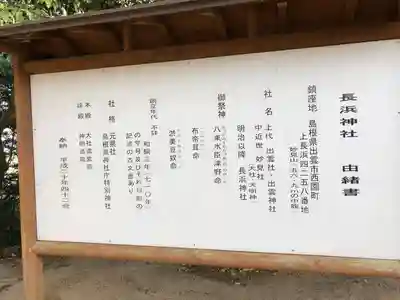 長浜神社 由緒書
鎮座地 島根県出雲市西園町
上長浜四二五八番地
妙見山
社名 上代 出雲社・出雲神社
中近世 妙見社
明治以降 長浜神社
御祭神
八束水臣津野命
布帝耳命
淤美豆奴命
創立年代 不詳
社格 元県社
島根県神社庁特別神社
本殿 大社造